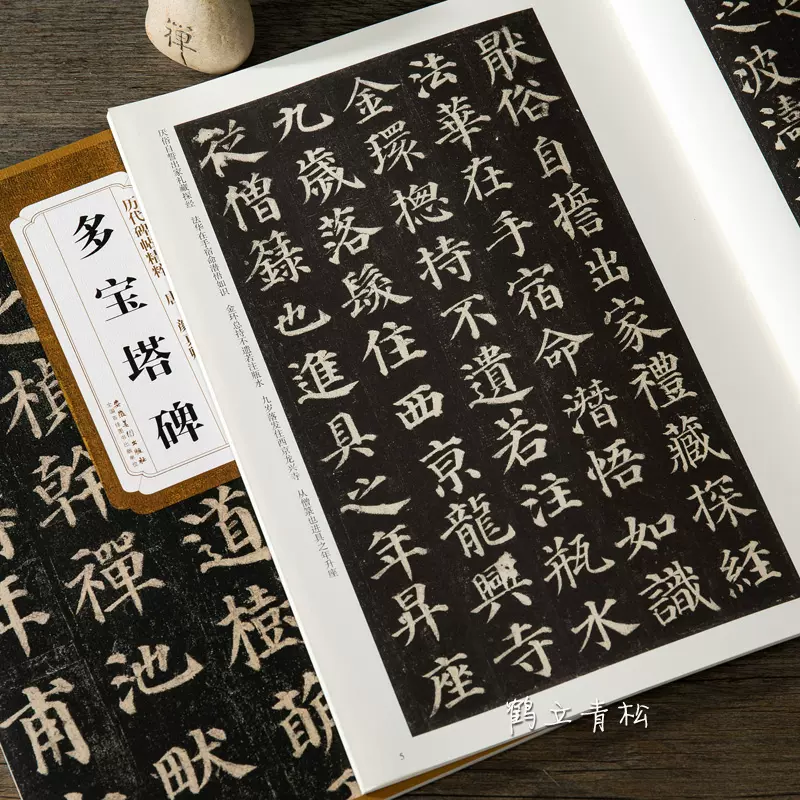 禪
之波濤
猒俗自誓出家禮藏探經
法華在手宿命潛悟如識
金環揔持不遺若注瓶水
九歲落髮住西京龍興寺
從僧籙也進具之年昇座
厌俗自誓出家礼藏探经 法华在手宿命潜悟如识 金环总持不遗若注瓶水 九岁落发住西京龙兴寺 从僧箓也进具之年升座
5
历代碑帖精粹
多宝塔碑
安徽美术出版社
全国百佳图书出版单位
道樹萌
禎幹禪池畎
年甫
鹤立青松